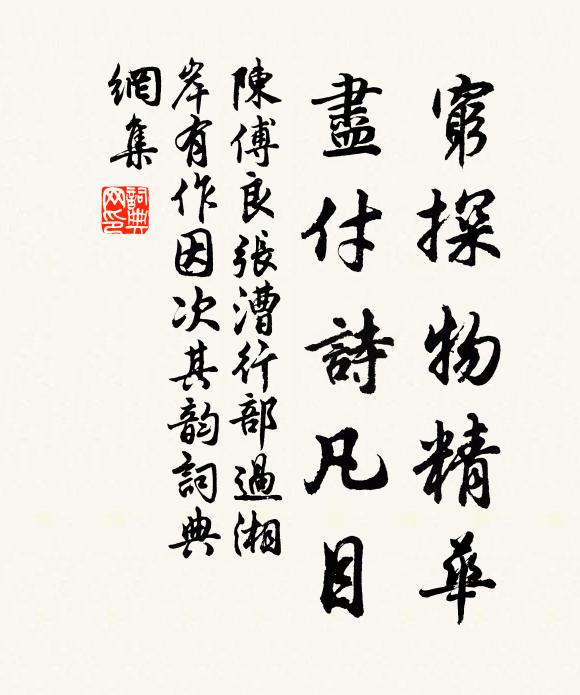 窮探物精華
盡付詩凡目
陳傅良張漕行部過湘
岸有作因次其韵詞典
網集
詞典網印